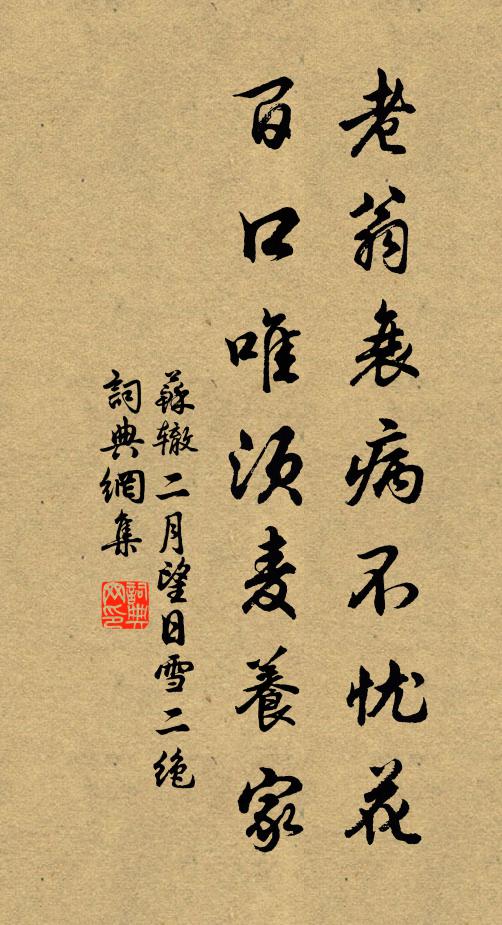 老翁衰病不忧花
百口唯须麦養家
蘇辙二月望日雪二绝
詞典網集
詞典网印